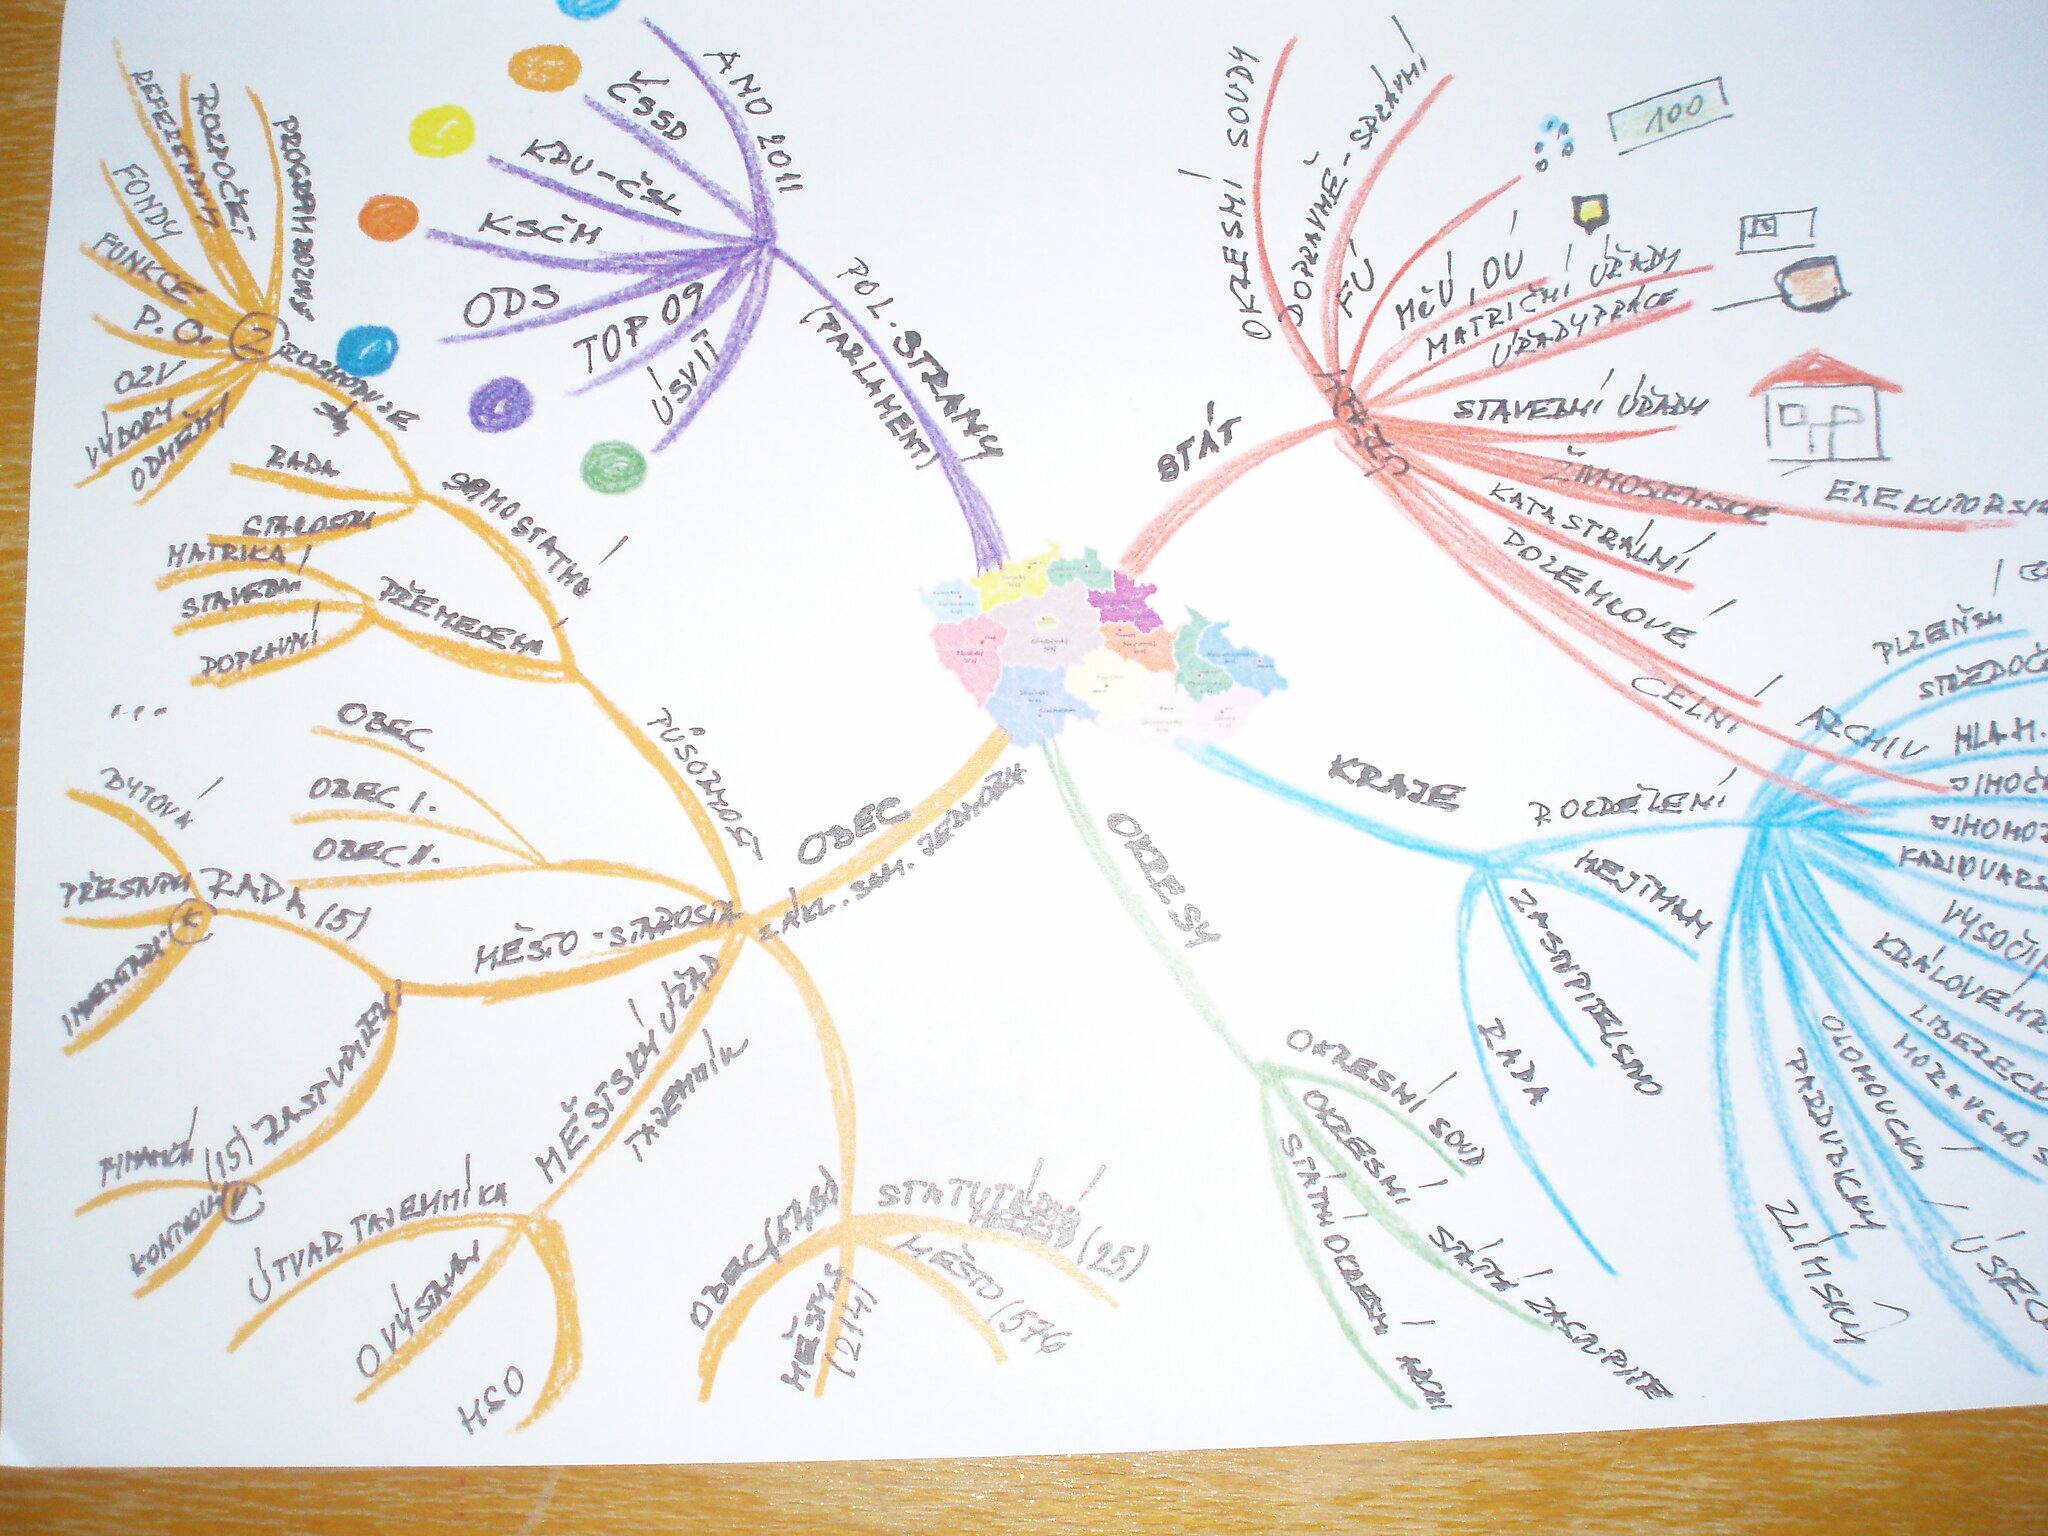 ANO 2011
ČSSD
KDU-ČSL
KSČM
ODS
TOP 09
ÚSVIT
POL. STRANY
(PARLAMENT)
REFERENDUM
ROZPOČET
FONDY
FUNKCE
P.O.
OZV
VÝBORY
ODMĚNY
2
ROZHODUJE
RADA
SAMOSTATNÁ
MATRIKA
STAVEBNÍ
DOPRAVNÍ
PŘENESENÁ
...
PŮSOBNOST
OBEC
OBEC I.
OBEC II.
BYTOVÁ
RADA (5)
MĚSTO - STAROSTA
ZASTUPITELÉ
(15)
FINANČNÍ
KONTROLNÍ
MĚSTSKÝ ÚŘAD
TAJEMNÍK
ÚTVAR TAJEMNÍKA
O VÝSTAVBY
HSO
OBEC
ZÁKL. SAM. JEDNOTKA
MĚSTYS
(214)
MĚSTO (576
(25)
STÁT
OKRESNÍ SOUDY
DOPRAVNĚ-SPRÁVNÍ
FÚ
100
MěÚ, OÚ
MATRIČNÍ ÚŘADY
ÚŘADY PRÁCE
STAVEBNÍ ÚŘADY
ŽIVNOSTENSKÉ
KATASTRÁLNÍ
POZEMKOVÉ
CELNÍ
ARCHIV
OKRESY
OKRESNÍ SOUD
OKRESNÍ STÁTNÍ ZASTUPITE
STÁTNÍ OKRESNÍ ARCHI
KRAJE
ROZDĚLENÍ
HEJTMAN
ZASTUPITELSTVO
RADA
PLZEŇSK
STŘEDOČ
HLAV.
JIHOČ
JIHOMO
KARLOVARS
VYSOČIN
KRÁLOVÉHR
LIBERECK
MORAVSKO S
OLOMOUCKÝ
PARDUBICKÝ
ÚSTEC
ZLÍNSKÝ